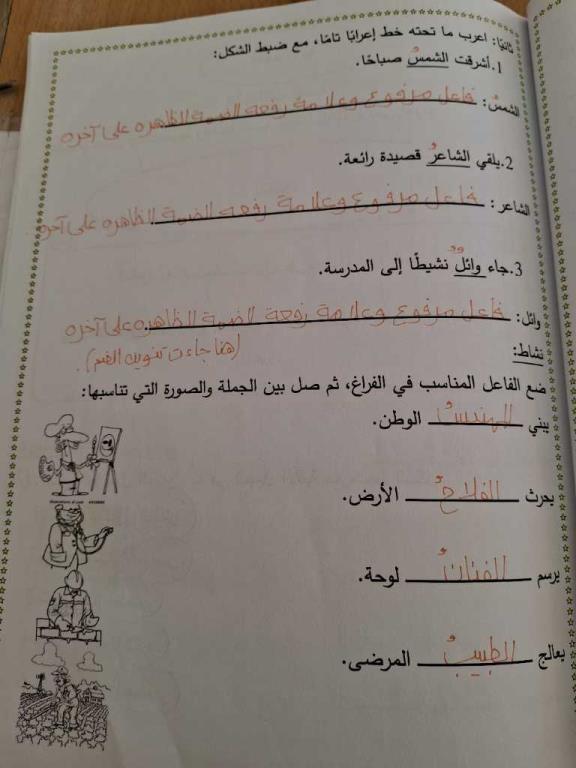 ثانيًا: اعرب ما تحته خط إعرابًا تامًا، مع ضبط الشكل:
1.أشرقت الشمسُ صباحًا.
الشمسُ: فاعل مرفوع وعلامة رفعه الضمة الظاهره على آخره
2.يلقي الشاعرُ قصيدة رائعة.
الشاعر: فاعل مرفوع وعلامة رفعه الضمة الظاهره على آخره
3.جاء وائلٌ نشيطًا إلى المدرسة.
وائل: فاعل مرفوع وعلامة رفعة الضمة الظاهره على آخره
(هنا جاءت تنوين الضم).
نشاط:
ضع الفاعل المناسب في الفراغ، ثم صل بين الجملة والصورة التي تناسبها:
يبني المهندسُ الوطن.
يحرث الفلاحُ الأرض.
يرسم الفنانُ لوحة.
يعالج الطبيبُ المرضى.